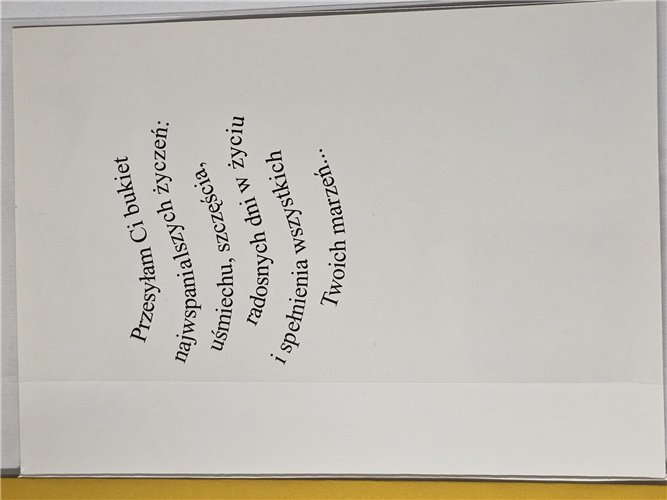 Przesyłam Ci bukiet
najwspanialszych życzeń:
uśmiechu, szczęścia,
radosnych dni w życiu
i spełnienia wszystkich
Twoich marzeń...